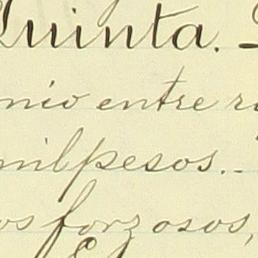 Quinta.
nio entre
mil pesos.
os forzosos,